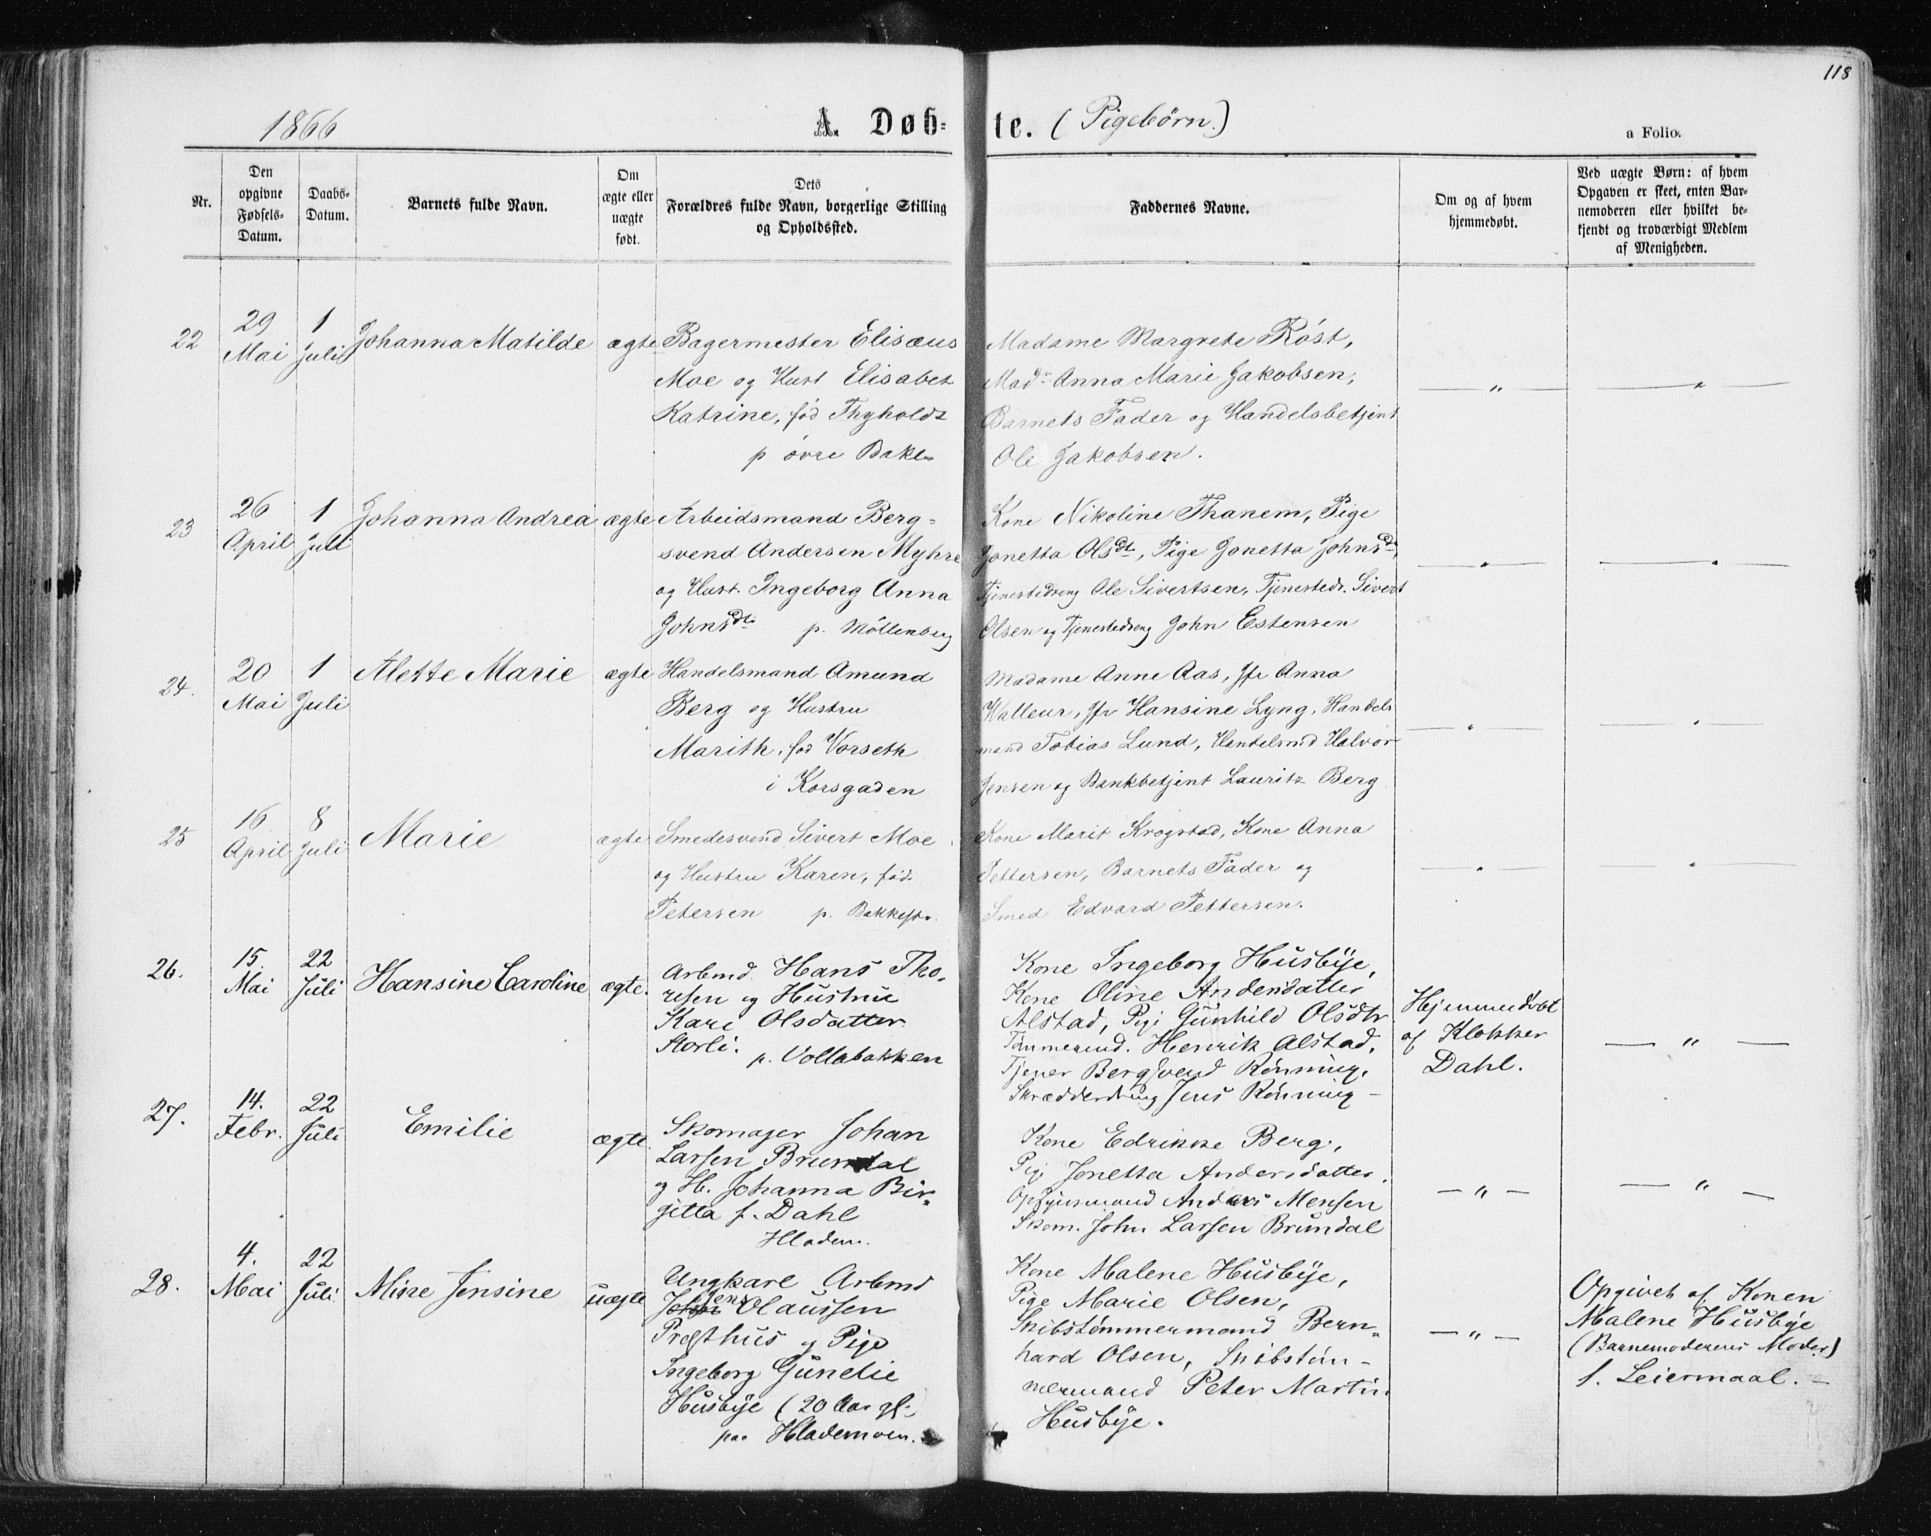 118
1866
A. Døb-
te. (Pigebørn.)
a Folio.
Nr.
Den
opgivne
Fødsels-
Datum.
Daabs-
Datum.
Barnets fulde Navn.
Om
ægte eller
uægte
født.
Dets
Forældres fulde Navn, borgerlige Stilling
og Opholdssted.
Faddernes Navne.
Om og af hvem
hjemmedøbt.
Ved uægte Børn: af hvem
Opgaven er skeet, enten Bar-
nemoderen eller hvilket be-
kjendt og troværdigt Medlem
af Menigheden.
22
29
Mai
1
Juli
Johanna Matilde
ægte
Bagermester Elisæus
Moe og Hust Elisabet
Katrine, fød Thyholdt
p øvre Bakl.
Madame Margrete Röst,
Madm Anna Marie Jakobsen,
Barnets Fader og Handelsbetjent
Ole Jakobsen.
— " —
— " —
23
26
April
1
Juli
Johanna Andrea
ægte
Arbeidsmand Berg-
svend Andersen Myhre
og Hust. Ingeborg Anna
Johnsdt. p. Möllenberg
Kone Nikoline Thanem, Pige
Jonetta Olsdt, Pige Jonetta Johnsdt,
Tjenestedreng Ole Sivertsen, Tjenestedr. Sivert
Olsen og Tjenestedreng John Estensen
— " —
— " —
24.
20
Mai
1
Juli
Alette Marie
ægte
Handelsmand Amund
Berg og Hustru
Marith, fød Vorseth
i Korsgaden
Madame Anne Aas, Jfr Anna
Walleur, Jfr Hansine Lyng, Handels
mand Tobias Lund, Handelsmd Halvor
Jensen og Bankbetjent Lauritz Berg
— " —
— " —
25
16
April
8
Juli
Marie
ægte
Smedesvend Sivert Moe
og Hustru Karen, fød.
Petersen p. Bakkestr.
Kone Marit Krogstad, Kone Anna
Pettersen, Barnets Fader og
Smed Edvard Pettersen.
— " —
— " —
26.
15.
Mai
22
Juli
Hansine Caroline
ægte.
Arbmd. Hans Tho-
resen og Hustrue
Kari Olsdatter
Storli. p. Vollabakken
Kone Ingeborg Husbÿe,
Kone Oline Andersdatter
Alstad, Pige Gunhild Olsdtr
Tømmermd. Henrik Alstad,
Tjener Bergsvend Rönning,
Skrædderdreng Jens Rönning —
Hjemmedøbt
af Klokker
Dahl.
— " —
27.
14.
Febr.
22
Juli
Emilie
ægte
Skomager Johan
Larsen Brundal
og H. Johanna Bir-
gitta f. Dahl
Hladem.
Kone Edrikke Berg,
Pige Jonetta Andersdatter,
Opsynsmand Anders Mensen
Skom. John Larsen Brundal
— " —
— " —
28.
4.
Mai
22
Juli
Mine Jensine
uægte
Ungkarl Arbmd
Jens Olaussen
Præsthus og Pige
Ingeborg Gunelie
Husbÿe (20 Aar gl.
paa Hlademoen.
Kone Malene Husbÿe,
Pige Marie Olsen,
Skibstømmermand Bern-
hard Olsen, Skibstøm-
mermand Peter Martin
Husbÿe.
— " —
Opgivet af Konen
Malene Husbÿe
(Barnemoderens Moder)
1. Leiermaal. —